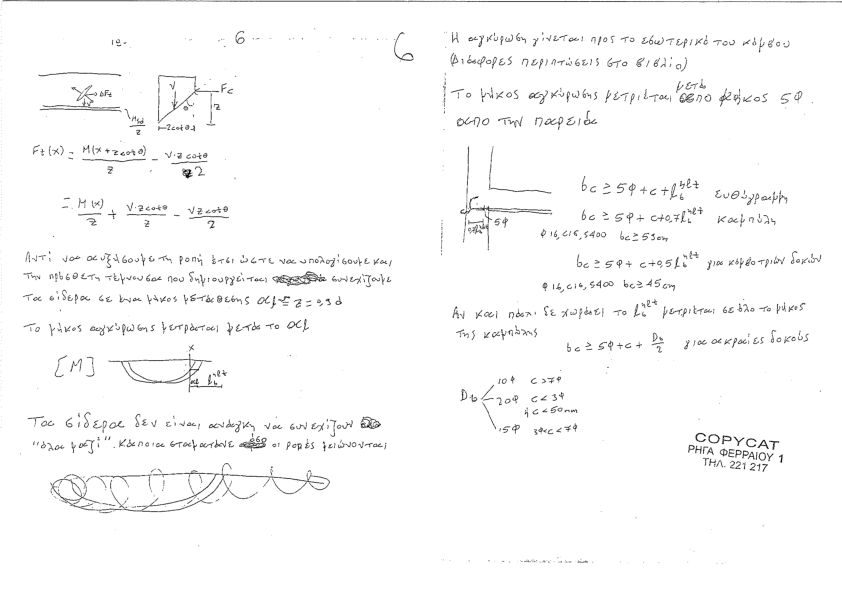 12-
6
6
ΔFt
V
Fc
θ
z
zcotθ
Msd/z
Ft(x) = M(x+zcotθ)/z - V·zcotθ/2
= M(x)/z + V·zcotθ/z - Vzcotθ/2
Αντί να αυξήσουμε τη ροπή έτσι ώστε να υπολογίσουμε και
την πρόσθετη τέμνουσα που δημιουργείται συνεχίζουμε
Τα σίδερα σε ένα μήκος μετάθεσης αl = z = 0,9d
Το μήκος αγκύρωσης μετράται μετά το αl
[M]
x
al lb,net
Τα σίδερα δεν είναι ανάγκη να συνεχίζουν
"όλα μαζί". Κάποια σταματάνε όσο οι ροπές μειώνονται
Η αγκύρωση γίνεται προς το εσωτερικό του κόμβου
(Διάφορες περιπτώσεις στο βιβλίο)
Το μήκος αγκύρωσης μετριέται μετά από μήκος 5Φ
από την παρειά
c
5Φ
bc ≥ 5Φ + c + lb,net ευθύγραμμη
bc ≥ 5Φ + c + 0,7lb,net καμπύλη
Φ16, c15, S400 bc ≥ 53cm
bc ≥ 5Φ + c + 0,5lb,net για κόμβο τριών δοκών
Φ16, c16, S400 bc ≥ 45cm
Αν και πάλι δε χωράει το lb,net μετριέται σε όλο το μήκος
της καμπύλης
bc ≥ 5Φ + c + Db/2 για ακραίες δοκούς
10Φ c>7Φ
Db 20Φ c<3Φ
ή c<50mm
15Φ 3Φ<c<7Φ
COPYCAT
ΡΗΓΑ ΦΕΡΡΑΙΟΥ 1
ΤΗΛ. 221 217